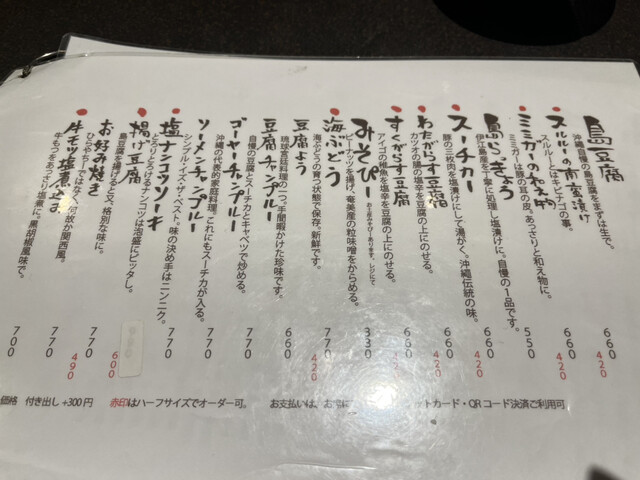 島豆腐
沖縄自慢の島豆腐をまずは生で。
660
420
スルルーの南蛮漬け
スルルーとはキビナゴの事。
660
420
ミミガーのわえ物
ミミガーは豚の耳の皮、あっさりと和え物に。
550
島らっきょう
伊江島産を丁寧に処理し塩漬けに。自慢の1品です。
660
420
スーチカー
豚の三枚肉を塩漬けにして湯がく。沖縄伝統の味。
770
420
わたがらす豆腐
カツオの腸の塩辛を豆腐の上にのせる。
660
420
すくがらす豆腐
アイゴの稚魚を塩辛を豆腐の上にのせる。
660
みそぴー
お土産みそぴーあります。レジにて
ピーナッツを揚げ、奄美産の粒味噌をからめる。
330
海ぶどう
海ぶどうの育つ状態で保存。新鮮です。
770
420
豆腐よう
琉球宮廷料理の一つ。手間暇かけた珍味です。
660
豆腐チャンプルー
自慢の豆腐とスーチカとキャベツで炒める。
770
ゴーヤーチャンプルー
沖縄の代表的家庭料理。これにもスーチカが入る。
770
ソーメンチャンプルー
シンプル・イズ・ザ・ベスト。味の決め手はニンニク。
770
塩ナンコツソーキ
とろりとろけるナンコツは泡盛にピッタシ。
600
揚げ豆腐
島豆腐を揚げると又、格別な味に。
770
お好み焼き
ひらやちーではなく、何故か関西風。
770
490
牛モツ塩煮込み
牛もつをあっさり塩煮に。黒胡椒風味で。
700
価格 付き出し +300円
赤印はハーフサイズでオーダー可。
お支払いは、お席に
ットカード・QRコード決済ご利用可